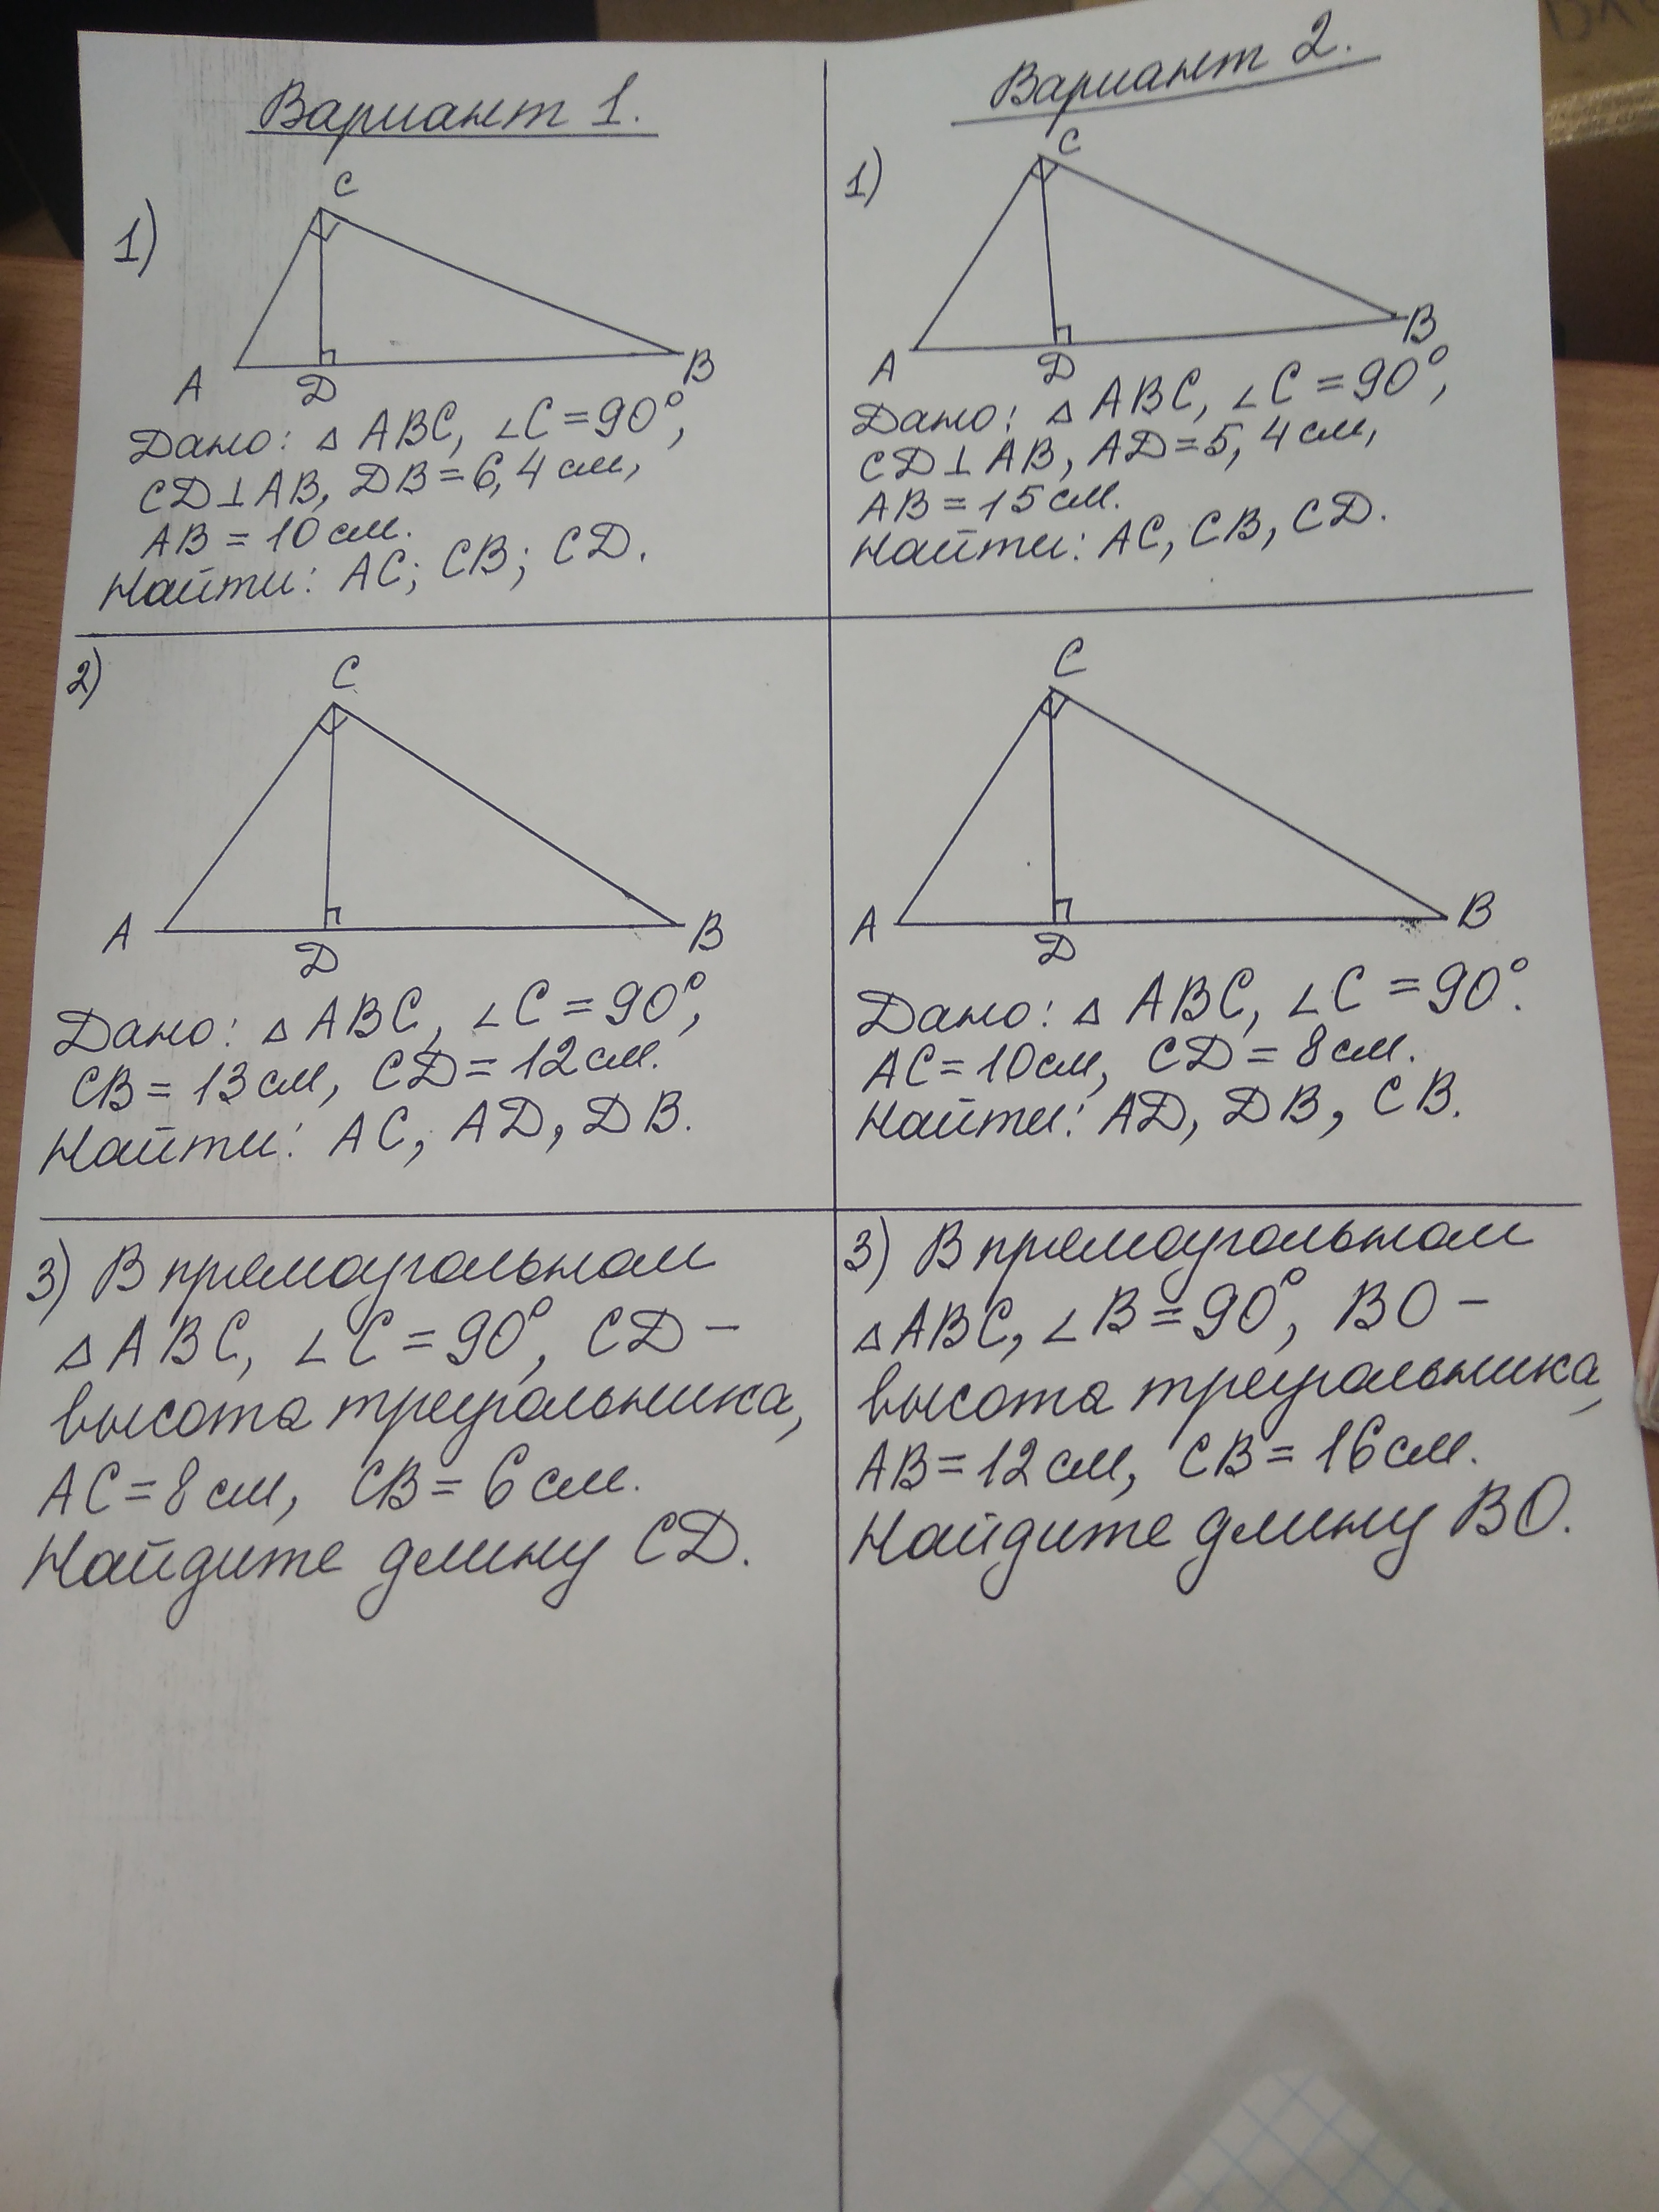 Вариант 1.
1)
C
A
D
B
Дано: △ ABC, ∠C = 90°,
CD⊥AB, DB = 6,4 см,
AB = 10 см.
Найти: AC; CB; CD.
2)
C
A
D
B
Дано: △ ABC, ∠C = 90°,
CB = 13 см, CD = 12 см.
Найти: AC, AD, DB.
3) В прямоугольном
△ ABC, ∠C = 90°, CD –
высота треугольника,
AC = 8 см, CB = 6 см.
Найдите длину CD.
Вариант 2.
1)
C
A
D
B
Дано: △ ABC, ∠C = 90°,
CD⊥AB, AD = 5,4 см,
AB = 15 см.
Найти: AC, CB, CD.
C
A
D
B
Дано: △ ABC, ∠C = 90°.
AC = 10 см, CD = 8 см.
Найти: AD, DB, CB.
3) В прямоугольном
△ ABC, ∠B = 90°, BO –
высота треугольника,
AB = 12 см, CB = 16 см.
Найдите длину BO.